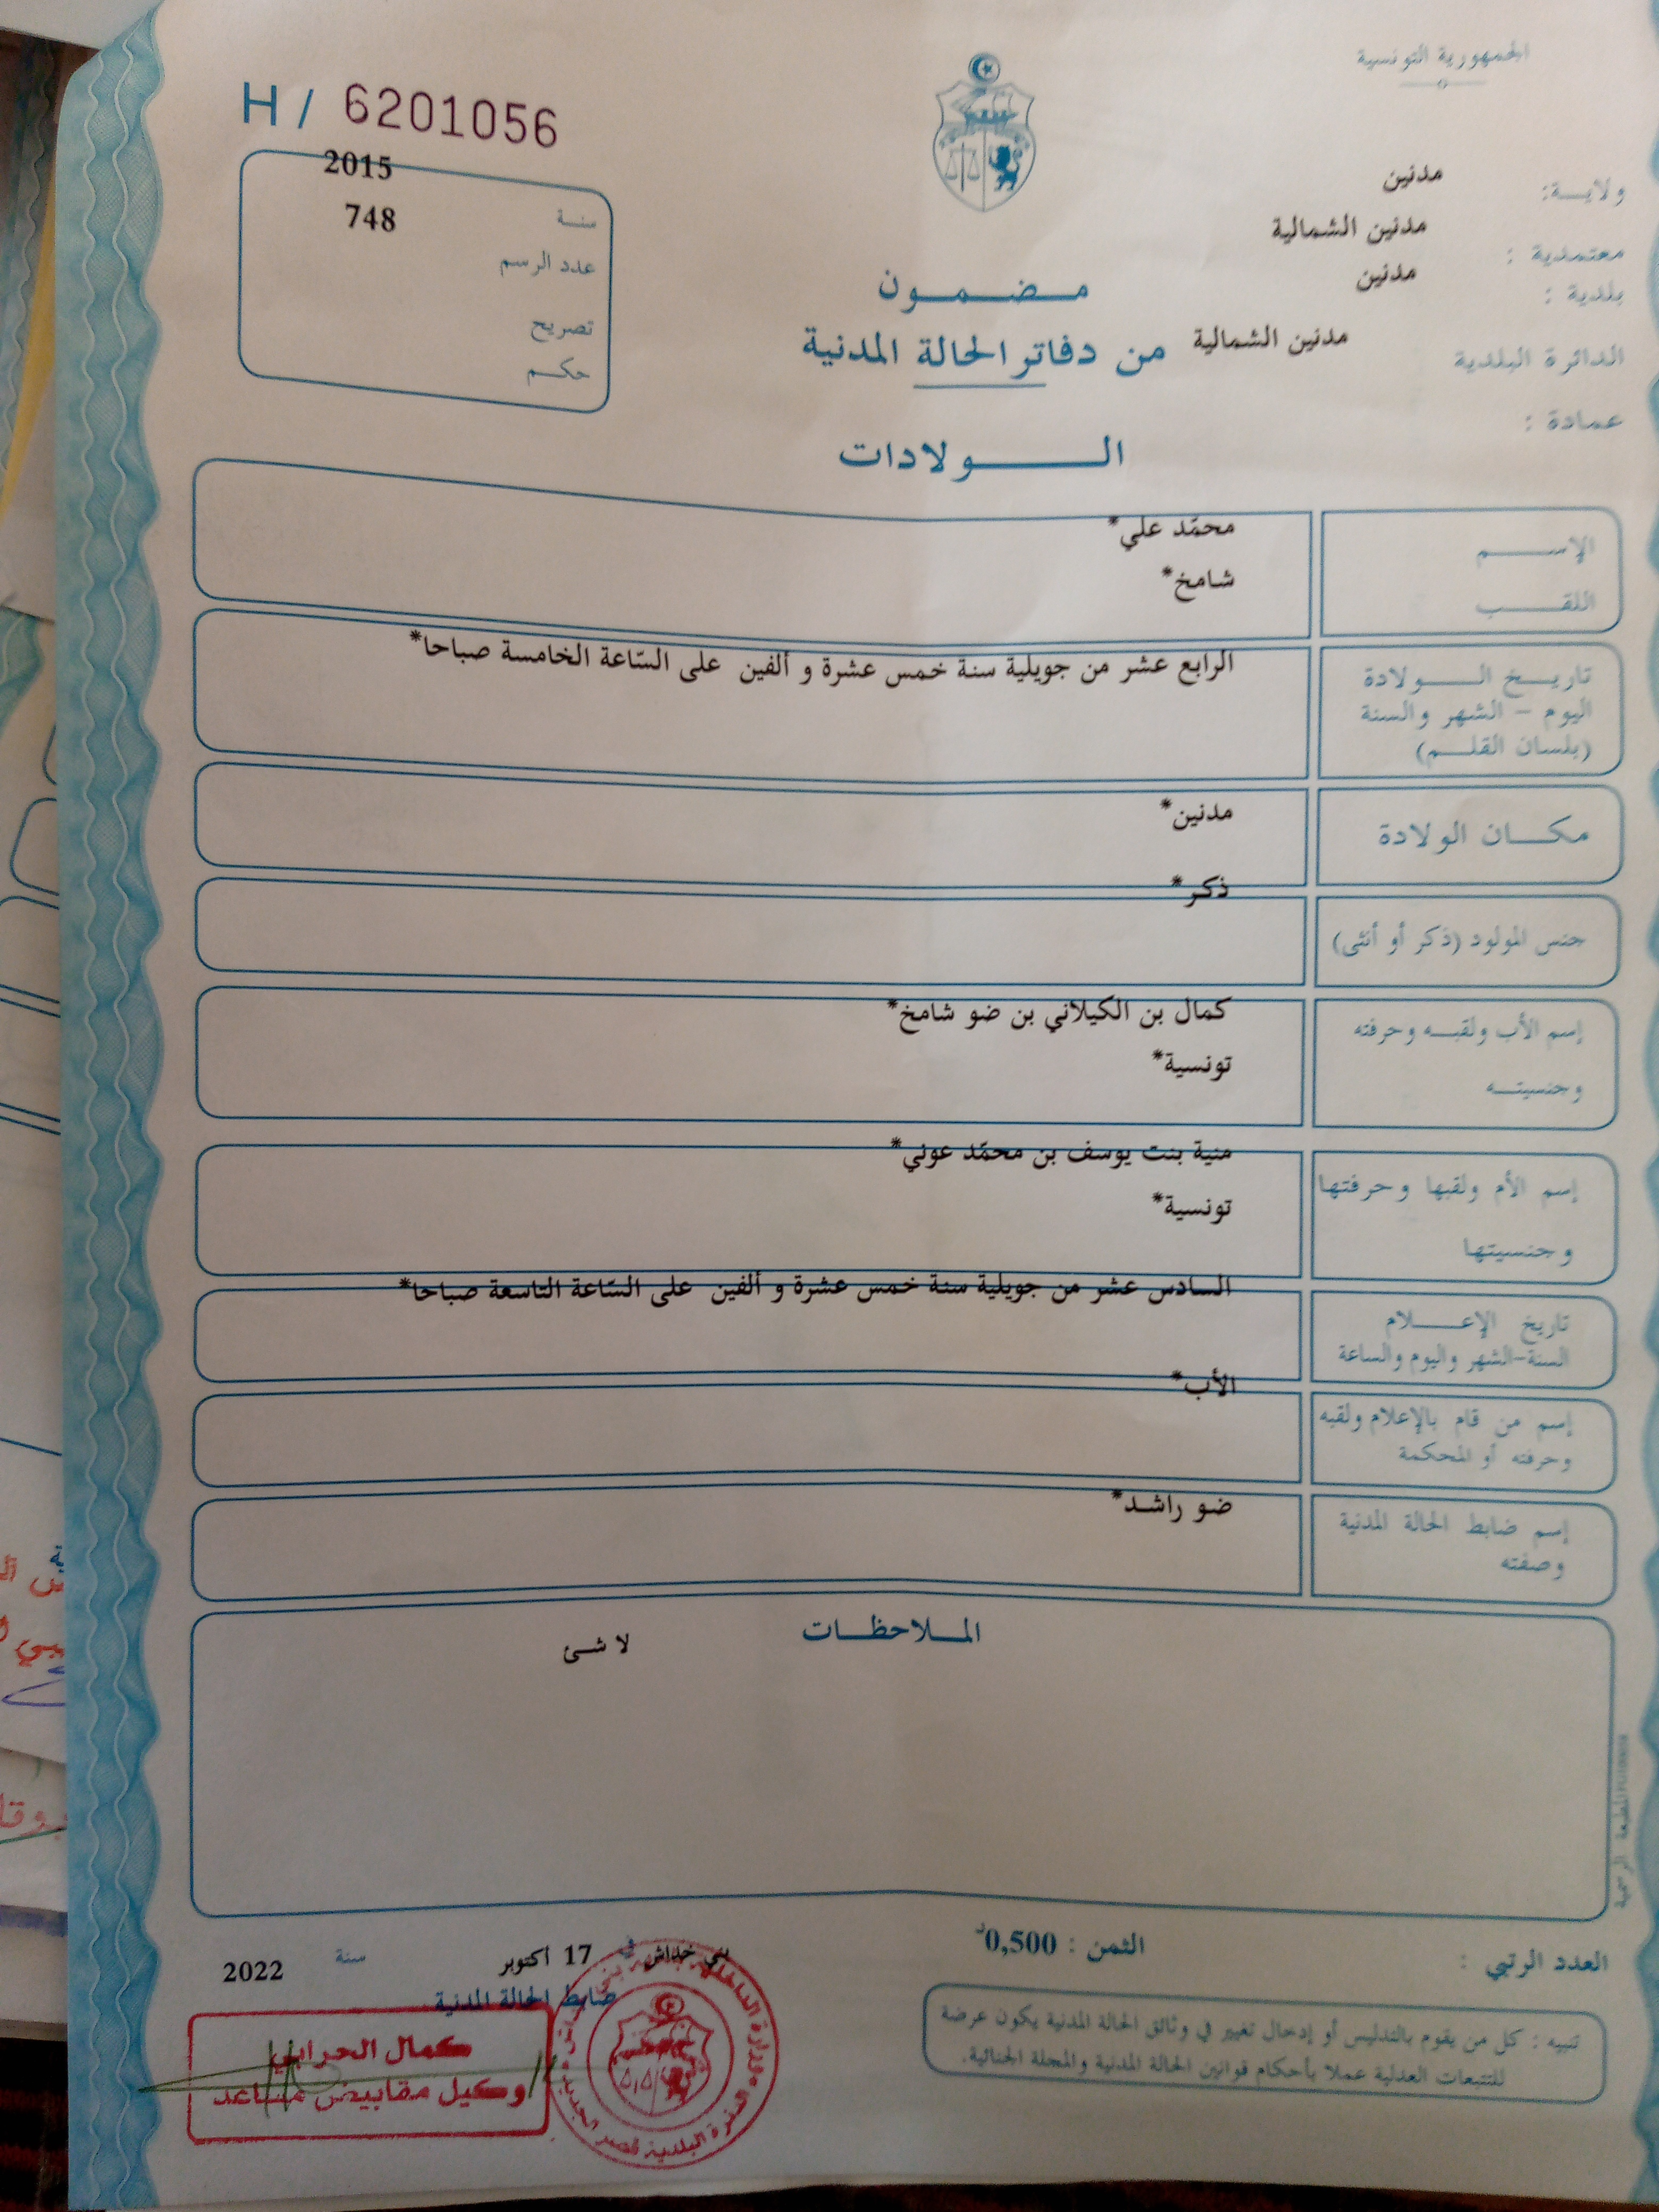 الجمهورية التونسية
H / 6201056
ولاية: مدنين
معتمدية : مدنين الشمالية
بلدية : مدنين
الدائرة البلدية مدنين الشمالية
عمادة :
سنة 2015
عدد الرسم 748
تصريح
حكم
مضمون
من دفاتر الحالة المدنية
الولادات
الإسم محمّد علي*
اللقب شامخ*
تاريخ الولادة الرابع عشر من جويلية سنة خمس عشرة و ألفين على السّاعة الخامسة صباحا*
اليوم - الشهر والسنة
(بلسان القلم)
مكان الولادة مدنين*
جنس المولود (ذكر أو أنثى) ذكر*
إسم الأب ولقبه وحرفته كمال بن الكيلاني بن ضو شامخ*
وجنسيته تونسية*
إسم الأم ولقبها وحرفتها منية بنت يوسف بن محمّد عوني*
وجنسيتها تونسية*
تاريخ الإعلام السادس عشر من جويلية سنة خمس عشرة و ألفين على السّاعة التاسعة صباحا*
السنة-الشهر واليوم والساعة
إسم من قام بالإعلام ولقبه الأب*
وحرفته أو المحكمة
إسم ضابط الحالة المدنية ضو راشد*
وصفته
الملاحظات
لا شئ
المطبعة الرسمية
العدد الرتبي :
الثمن : 0,500د
بني خداش في 17 أكتوبر سنة 2022
ضابط الحالة المدنية
كمال الحرابي
وكيل مقابيض مساعد
تنبيه : كل من يقوم بالتدليس أو إدخال تغيير في وثائق الحالة المدنية يكون عرضة
للتتبعات العدلية عملا بأحكام قوانين الحالة المدنية والمجلة الجنائية.